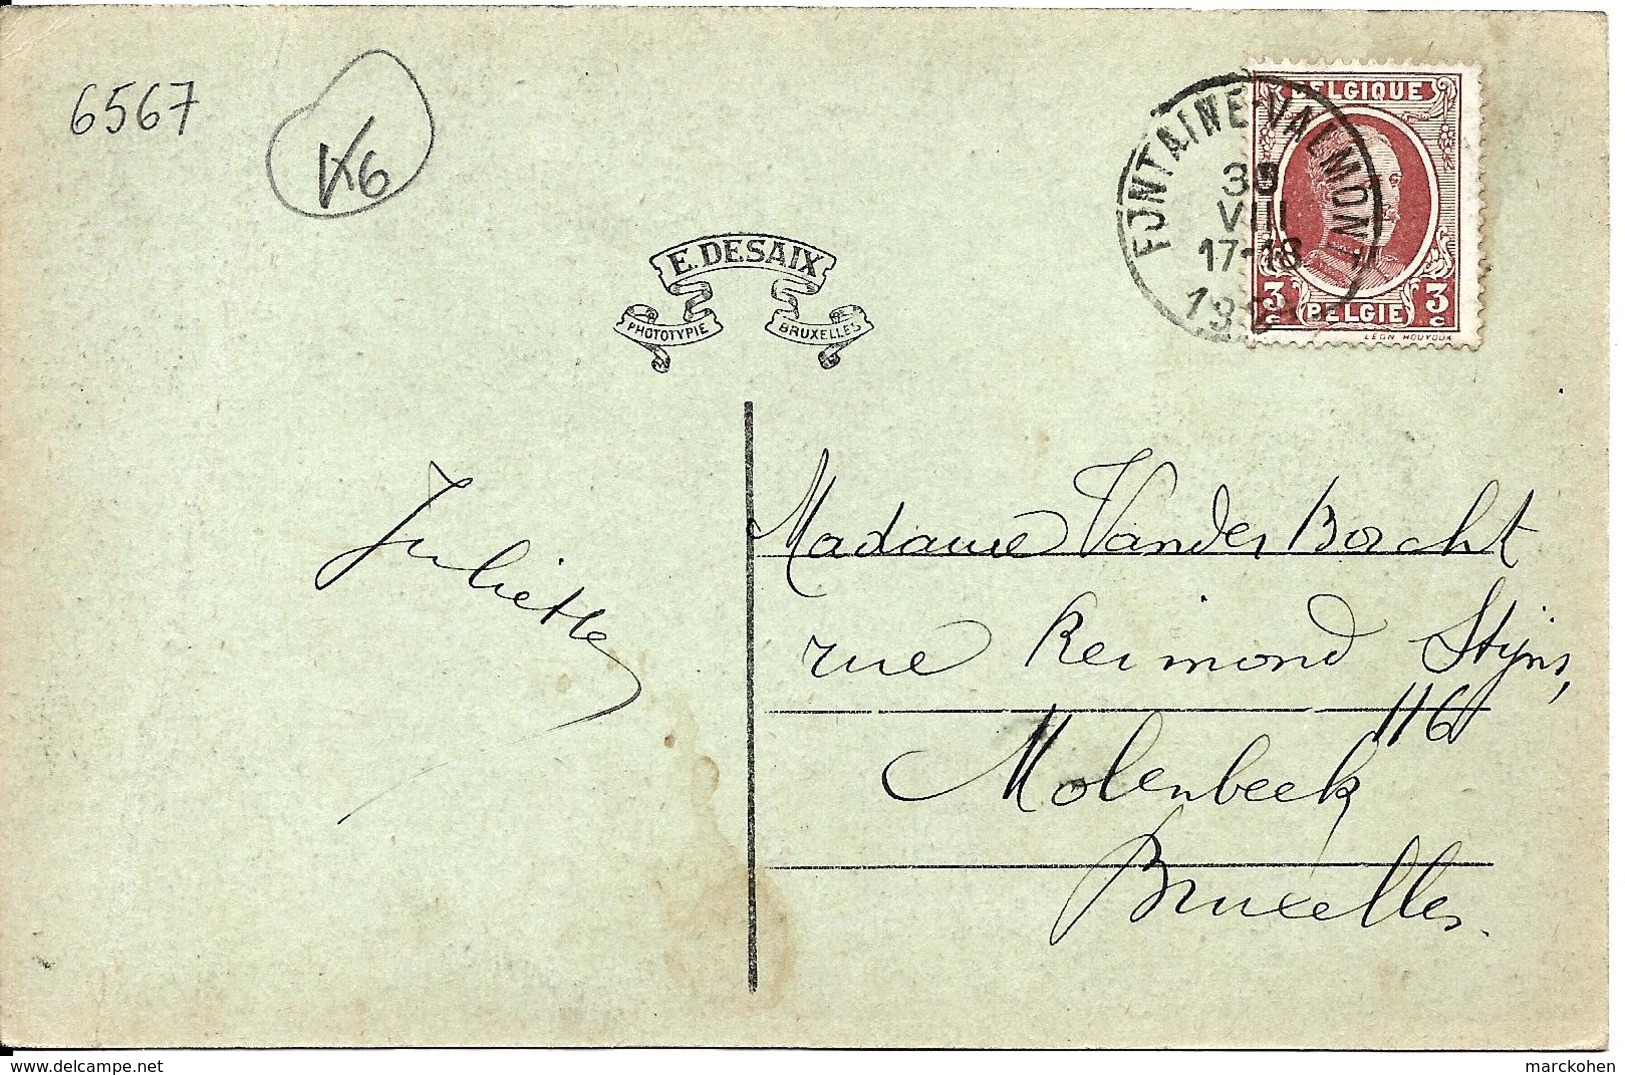 6567
K6
E. DESAIX
PHOTOTYPIE
BRUXELLES
FONTAINE-VALMONT
30
VIII
17-18
BELGIQUE
3 c
BELGIE
3 c
LEON HOUYOUX
Juliette
Madame Vander Borcht
rue Reimond Stijns,
116
Molenbeek
Bruxelles.
delcampe.net
marckohen